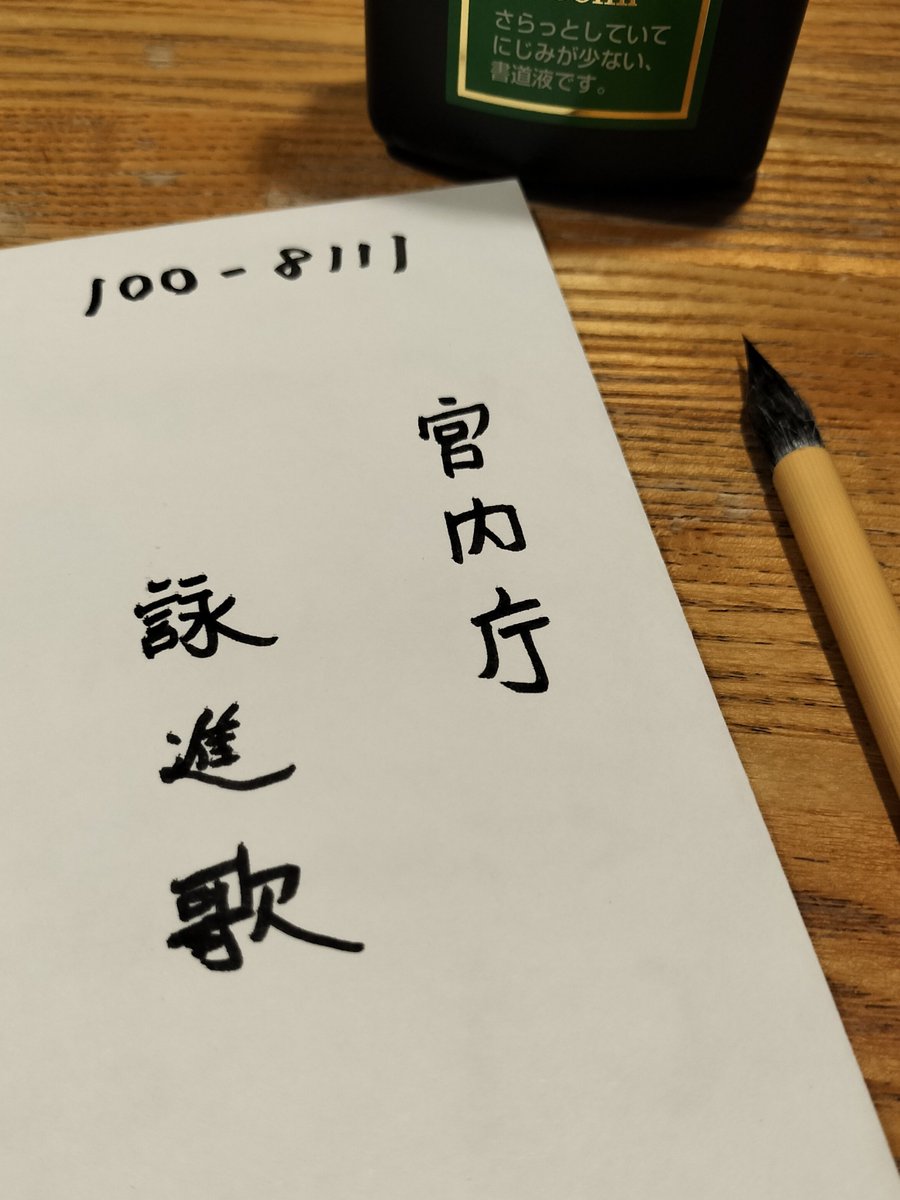 さらっとしていて
にじみが少ない、
書道液です。
100-8111
宮内庁
詠進歌